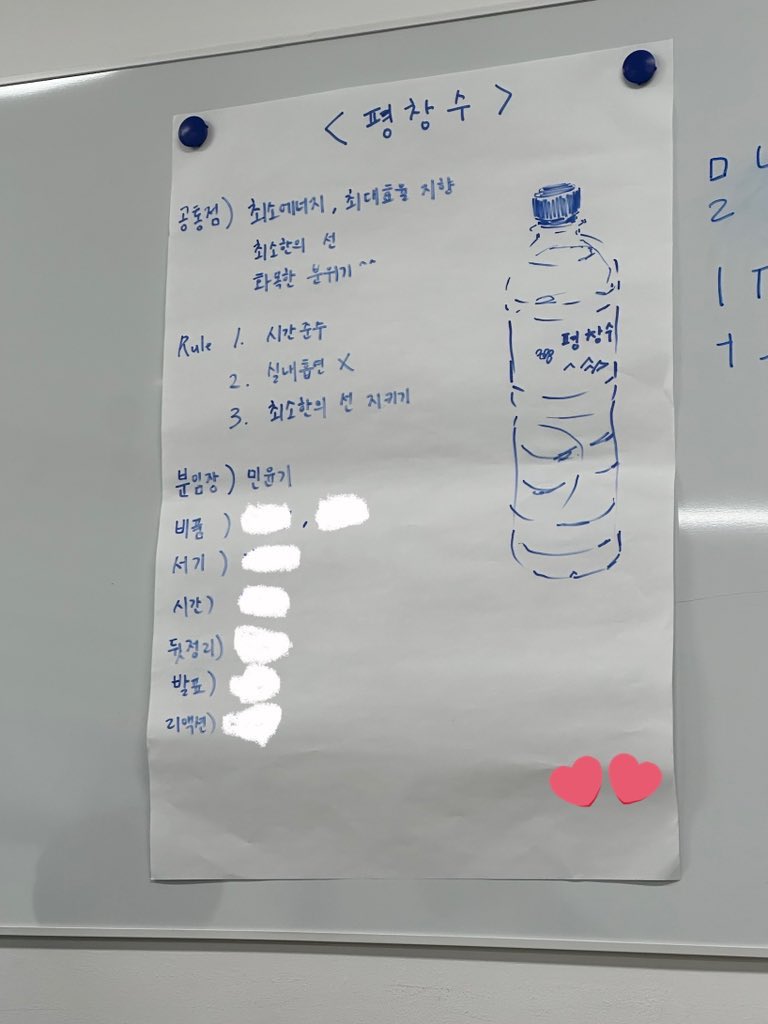 < 평창수 >
공통점) 최소에너지, 최대효율 지향
최소한의 선
화목한 분위기^^
Rule 1. 시간준수
2. 실내흡연 X
3. 최소한의 선 지키기
분임장) 민윤기
비품) ,
서기)
시간)
뒷정리)
발표)
리액션)
평창수